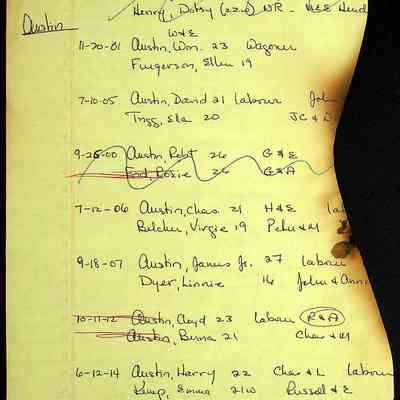 Henry, Dotsy (22w) NR - H&E Hend
Austin
W&E
11-20-01 Austin, Wm. 23 Wagoner
Furgerson, Ellen 19
7-10-05 Austin, David 21 labour John
Trigg, Ela 20 JC & D
9-25-00 Austin, Robt 26 G & E
Rosie 26 G & A
7-12-06 Austin, Chas. 21 H & E la
Belcher, Virgie 19 Pete & M
9-18-07 Austin, James Jr. 27 labour
Dyer, Linnie 16 John & Ann
10-11-12 Austin, Cloyd 23 labour R & A
Austin, Burma 21 Chas & M
6-12-14 Austin, Harry 22 Chas & L labour
Kemp, Emma 21w Russell & E